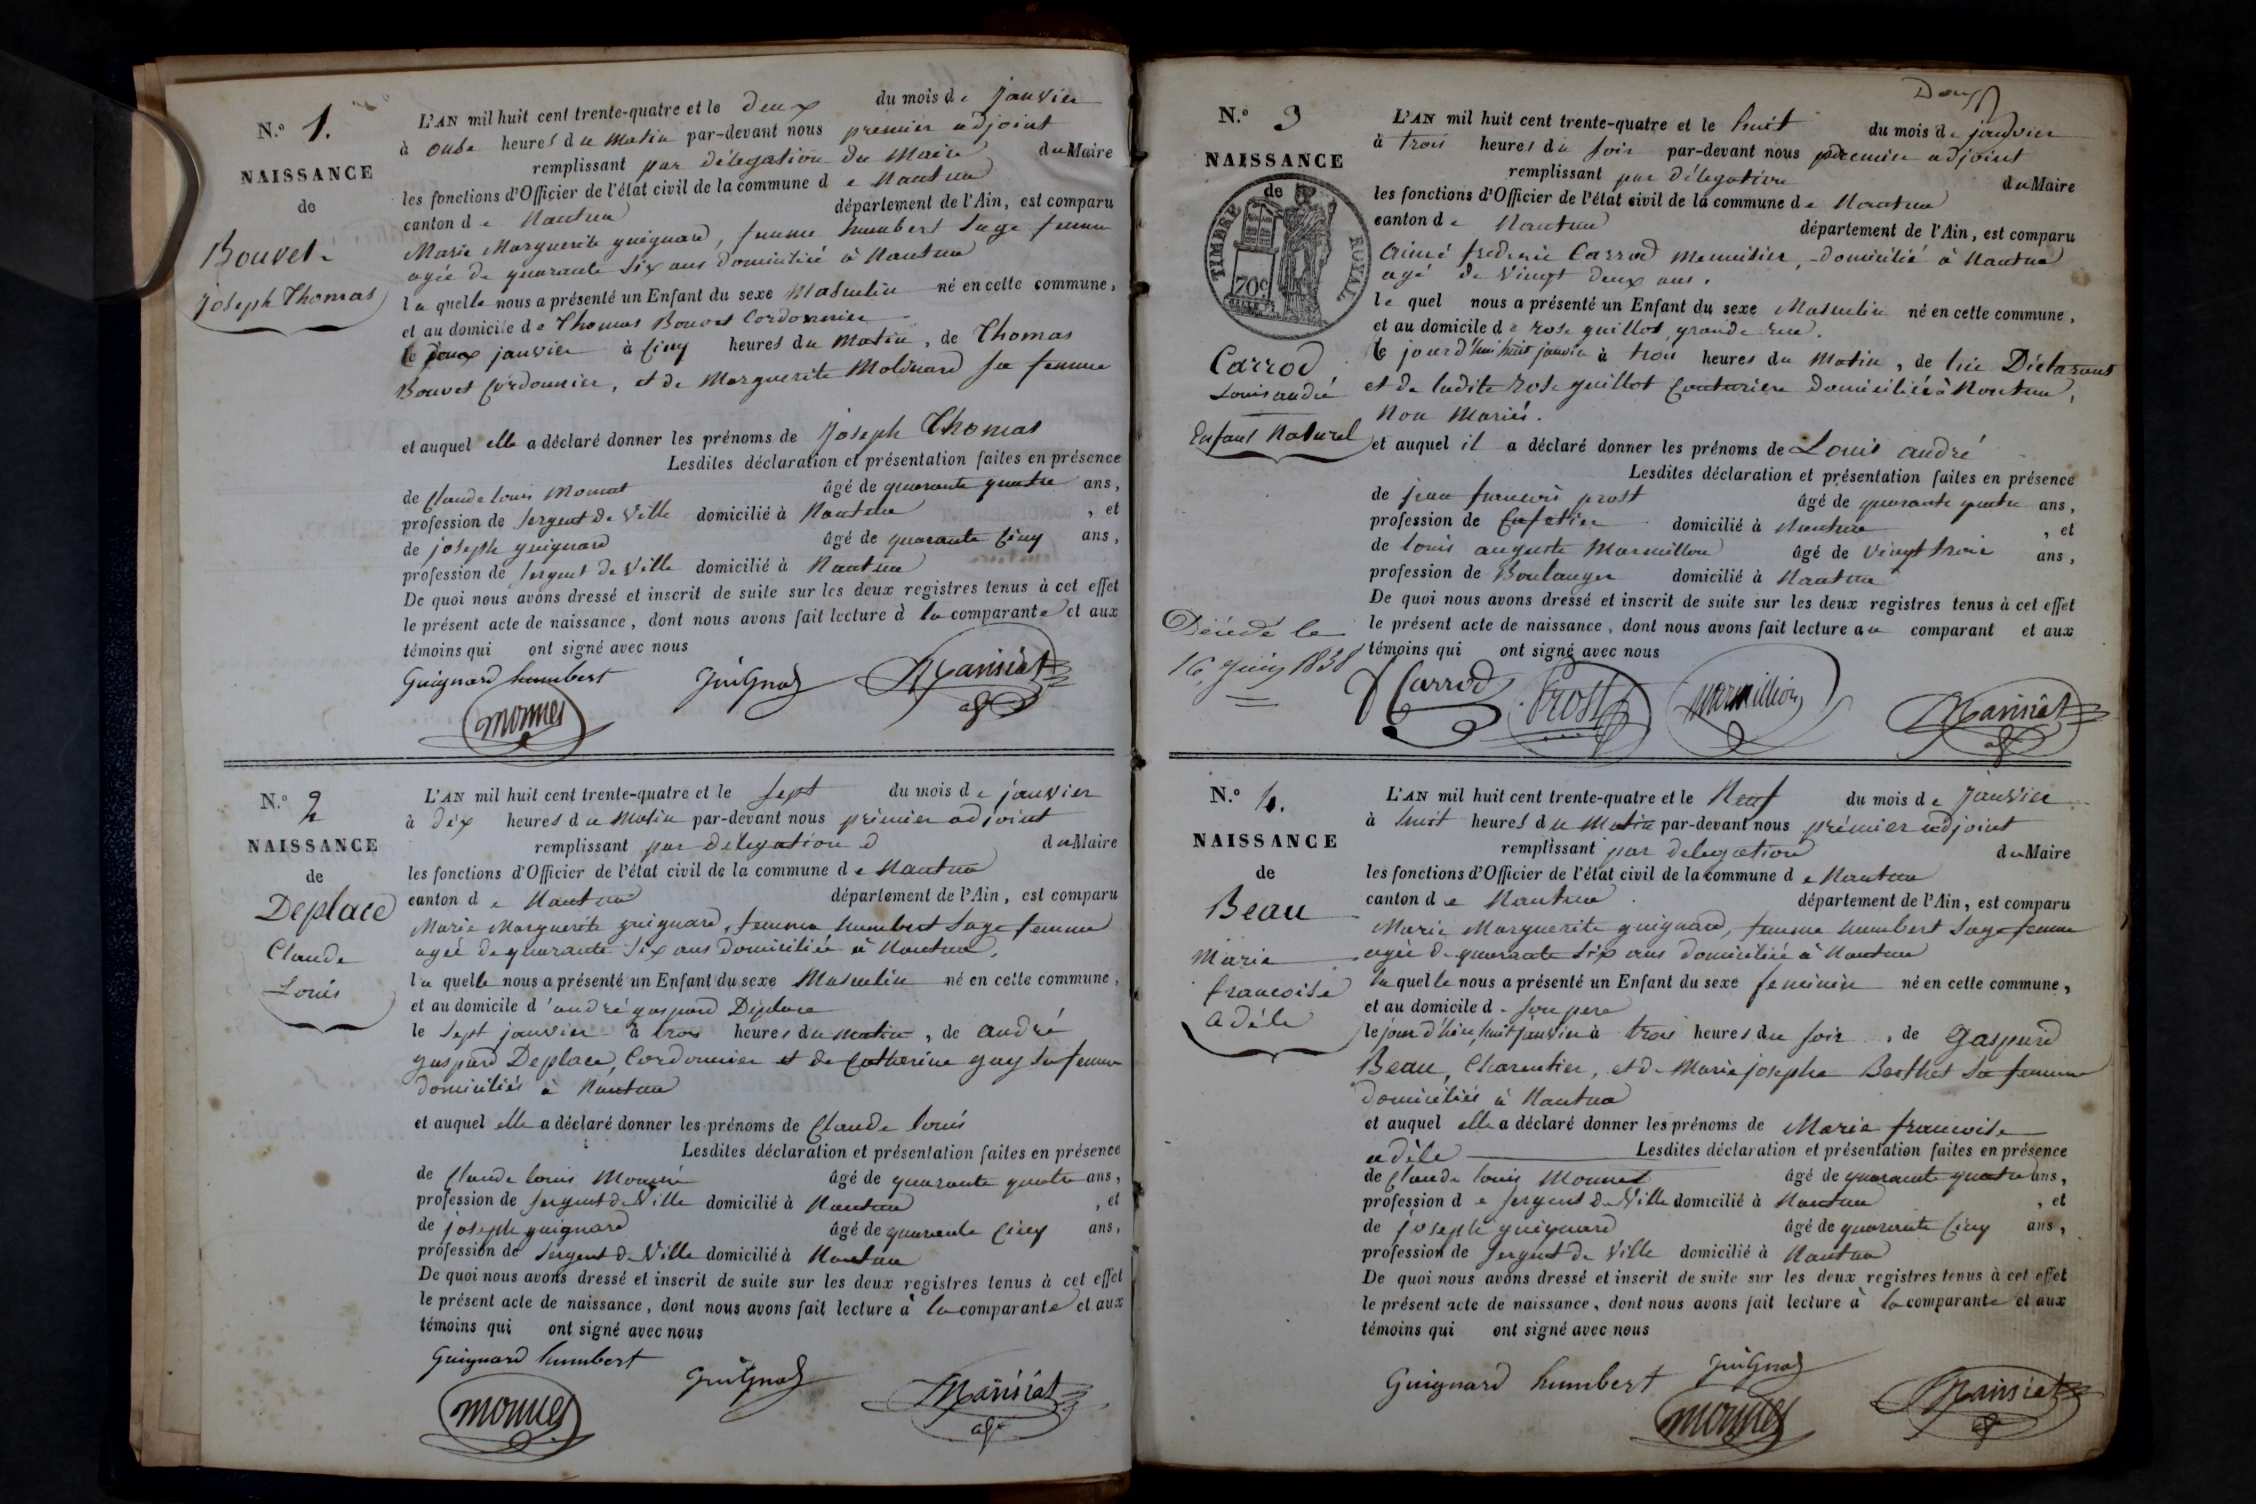 N.o 1.
NAISSANCE
de
Bouvet
Joseph Thomas
L'AN mil huit cent trente-quatre et le deux du mois de janvier
à onze heures du matin par-devant nous premier adjoint
remplissant par délégation du Maire du Maire
les fonctions d'Officier de l'état civil de la commune de Nantua
canton de Nantua département de l'Ain, est comparu
Marie Marguerite guignard, femme humbert Sage femme
agée de quarante Six ans domiciliée à Nantua
la quelle nous a présenté un Enfant du sexe Masculin né en cette commune,
et au domicile de Thomas Bouvet Cordonnier
le deux janvier à Cinq heures du matin, de Thomas
Bouvet Cordonnier, et de Marguerite Molinard sa femme
et auquel elle a déclaré donner les prénoms de Joseph Thomas
Lesdites déclaration et présentation faites en présence
de Claude louis Monnet âgé de quarante quatre ans,
profession de Sergent de Ville domicilié à Nantua, et
de joseph guignard âgé de quarante Cinq ans,
profession de Sergent de Ville domicilié à Nantua
De quoi nous avons dressé et inscrit de suite sur les deux registres tenus à cet effet
le présent acte de naissance, dont nous avons fait lecture à la comparante et aux
témoins qui ont signé avec nous
Guignard humbert GuiGnard Mansiat
monnet adjt
N.o 2
NAISSANCE
de
Deplace
Claude
Louis
L'AN mil huit cent trente-quatre et le sept du mois de janvier
à dix heures du matin par-devant nous prémier adjoint
remplissant par délegation d du Maire
les fonctions d'Officier de l'état civil de la commune de Nantua
canton de Nantua département de l'Ain, est comparu
Marie Marguerite guignard, femme humbert Sage femme
agée de quarante Six ans domiciliée à Nantua,
la quelle nous a présenté un Enfant du sexe Masculin né en cette commune,
et au domicile d'andré gaspard Deplace
le sept janvier à trois heures du matin, de andré
gaspard Deplace, Cordonnier et de Catherine guy sa femme
domiciliés à Nantua
et auquel elle a déclaré donner les prénoms de Claude louis
Lesdites déclaration et présentation faites en présence
de Claude louis Monnet âgé de quarante quatre ans,
profession de Sergent de Ville domicilié à Nantua, et
de joseph guignard âgé de quarante Cinq ans,
profession de Sergent de Ville domicilié à Nantua
De quoi nous avons dressé et inscrit de suite sur les deux registres tenus à cet effet
le présent acte de naissance, dont nous avons fait lecture à la comparante et aux
témoins qui ont signé avec nous
Guignard humbert GuiGnard Mansiat
monnet adjt
N.o 3
NAISSANCE
de
TIMBRE ROYAL
70c
Carrod
Louis andré
Enfant Naturel
Décédé le
16 juin 1838
L'AN mil huit cent trente-quatre et le huit du mois de janvier
à trois heures du soir par-devant nous premier adjoint
remplissant par délégation du Maire
les fonctions d'Officier de l'état civil de la commune de Nantua
canton de Nantua département de l'Ain, est comparu
Aimé frederic Carrod Menuisier, domicilié à Nantua
agé de Vingt deux ans,
le quel nous a présenté un Enfant du sexe Masculin né en cette commune,
et au domicile de rose guillot, grande rue.
le jourd'hui huit janvier à trois heures du Matin, de lui Déclarant
et de ladite rose guillot Couturiere domiciliée à Nantua,
Non Mariés.
et auquel il a déclaré donner les prénoms de Louis andré
Lesdites déclaration et présentation faites en présence
de jean francois prost âgé de quarante quatre ans,
profession de Cafetier domicilié à Nantua, et
de louis auguste Marmillon âgé de vingt trois ans,
profession de Boulanger domicilié à Nantua
De quoi nous avons dressé et inscrit de suite sur les deux registres tenus à cet effet
le présent acte de naissance, dont nous avons fait lecture au comparant et aux
témoins qui ont signé avec nous
Carrod Prost marmillion Mansiat
adjt
N.o 4.
NAISSANCE
de
Beau
Marie
francoise
adéle
L'AN mil huit cent trente-quatre et le Neuf du mois de Janvier
à huit heures du Matin par-devant nous prémier adjoint
remplissant par delegation du Maire
les fonctions d'Officier de l'état civil de la commune de Nantua
canton de Nantua département de l'Ain, est comparu
Marie Marguerite guignard, femme humbert Sage femme
agée de quarante Six ans domiciliée à Nantua
la quelle nous a présenté un Enfant du sexe feminin né en cette commune,
et au domicile de son pere
le jour d'hier, huit janvier à trois heures du soir, de Gaspard
Beau, Charpentier, et de Marie josephe Berthet sa femme
domiciliés à Nantua
et auquel elle a déclaré donner les prénoms de Marie francoise
adèle Lesdites déclaration et présentation faites en présence
de Claude louis Monnet âgé de quarante quatre ans,
profession de Sergent de Ville domicilié à Nantua, et
de joseph guignard âgé de quarante Cinq ans,
profession de Sergent de Ville domicilié à Nantua
De quoi nous avons dressé et inscrit de suite sur les deux registres tenus à cet effet
le présent acte de naissance, dont nous avons fait lecture à la comparante et aux
témoins qui ont signé avec nous
Guignard humbert GuiGnard Mansiat
monnet adjt